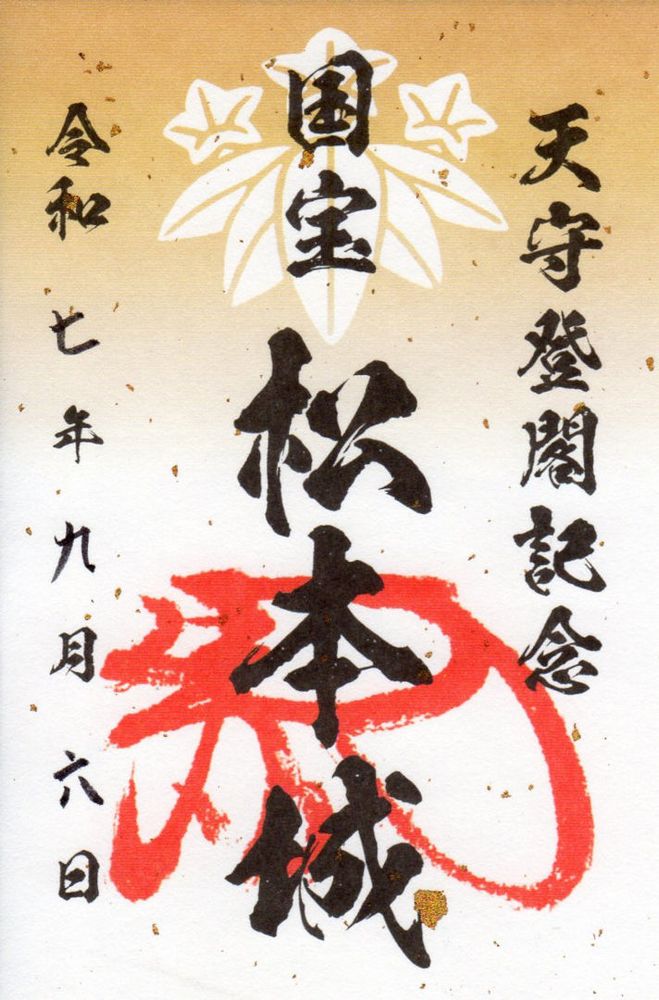 天守登閣記念
国宝 松本城
令和七年九月六日